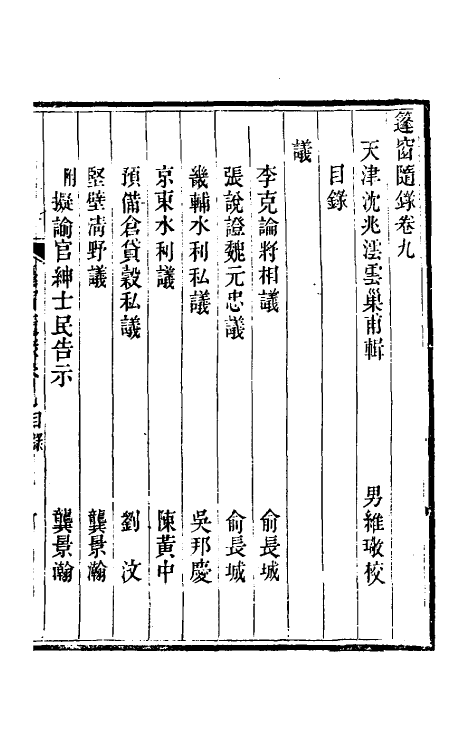 篷窗隨錄卷九
天津沈兆澐雲巢甫輯　男維璥校
目錄
議
李克論將相議　俞長城
張說證魏元忠議　俞長城
畿輔水利私議　吳邦慶
京東水利議　陳黃中
預備倉貸穀私議　劉汶
堅壁清野議　龔景瀚
附擬諭官紳士民告示　龔景瀚
目錄